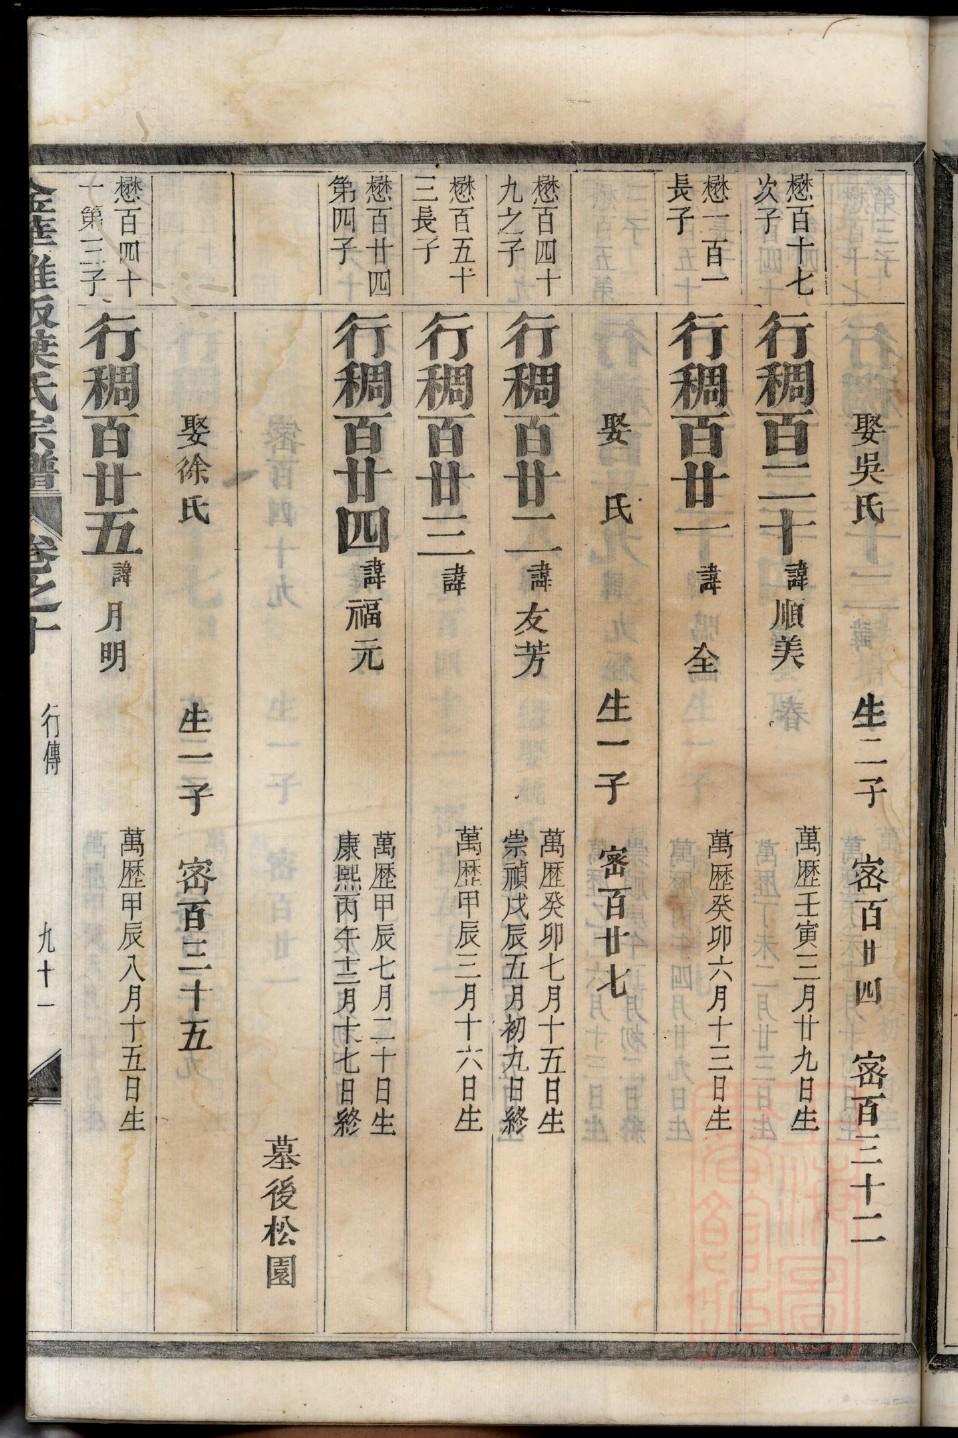 娶吳氏 生二子 密百廿四 密百三十二
懋百十七次子 行稠百二十 諱順美 萬歷壬寅三月廿九日生
懋一百一長子 行稠百廿一 諱全 萬歷癸卯六月十三日生
娶 氏 生一子 密百廿七
懋百四十九之子 行稠百廿二 諱友芳 萬歷癸卯七月十五日生 崇禎戊辰五月初九日終
懋百五十三長子 行稠百廿三 諱 萬歷甲辰三月十六日生
懋百廿四第四子 行稠百廿四 諱福元 萬歷甲辰七月二十日生 康熙丙午十二月十七日終
墓後松園
娶徐氏 生一子 密百三十五
懋百四十一第三子 行稠百廿五 諱月明 萬歷甲辰八月十五日生
葉氏宗譜 卷之十 行傳 九十一